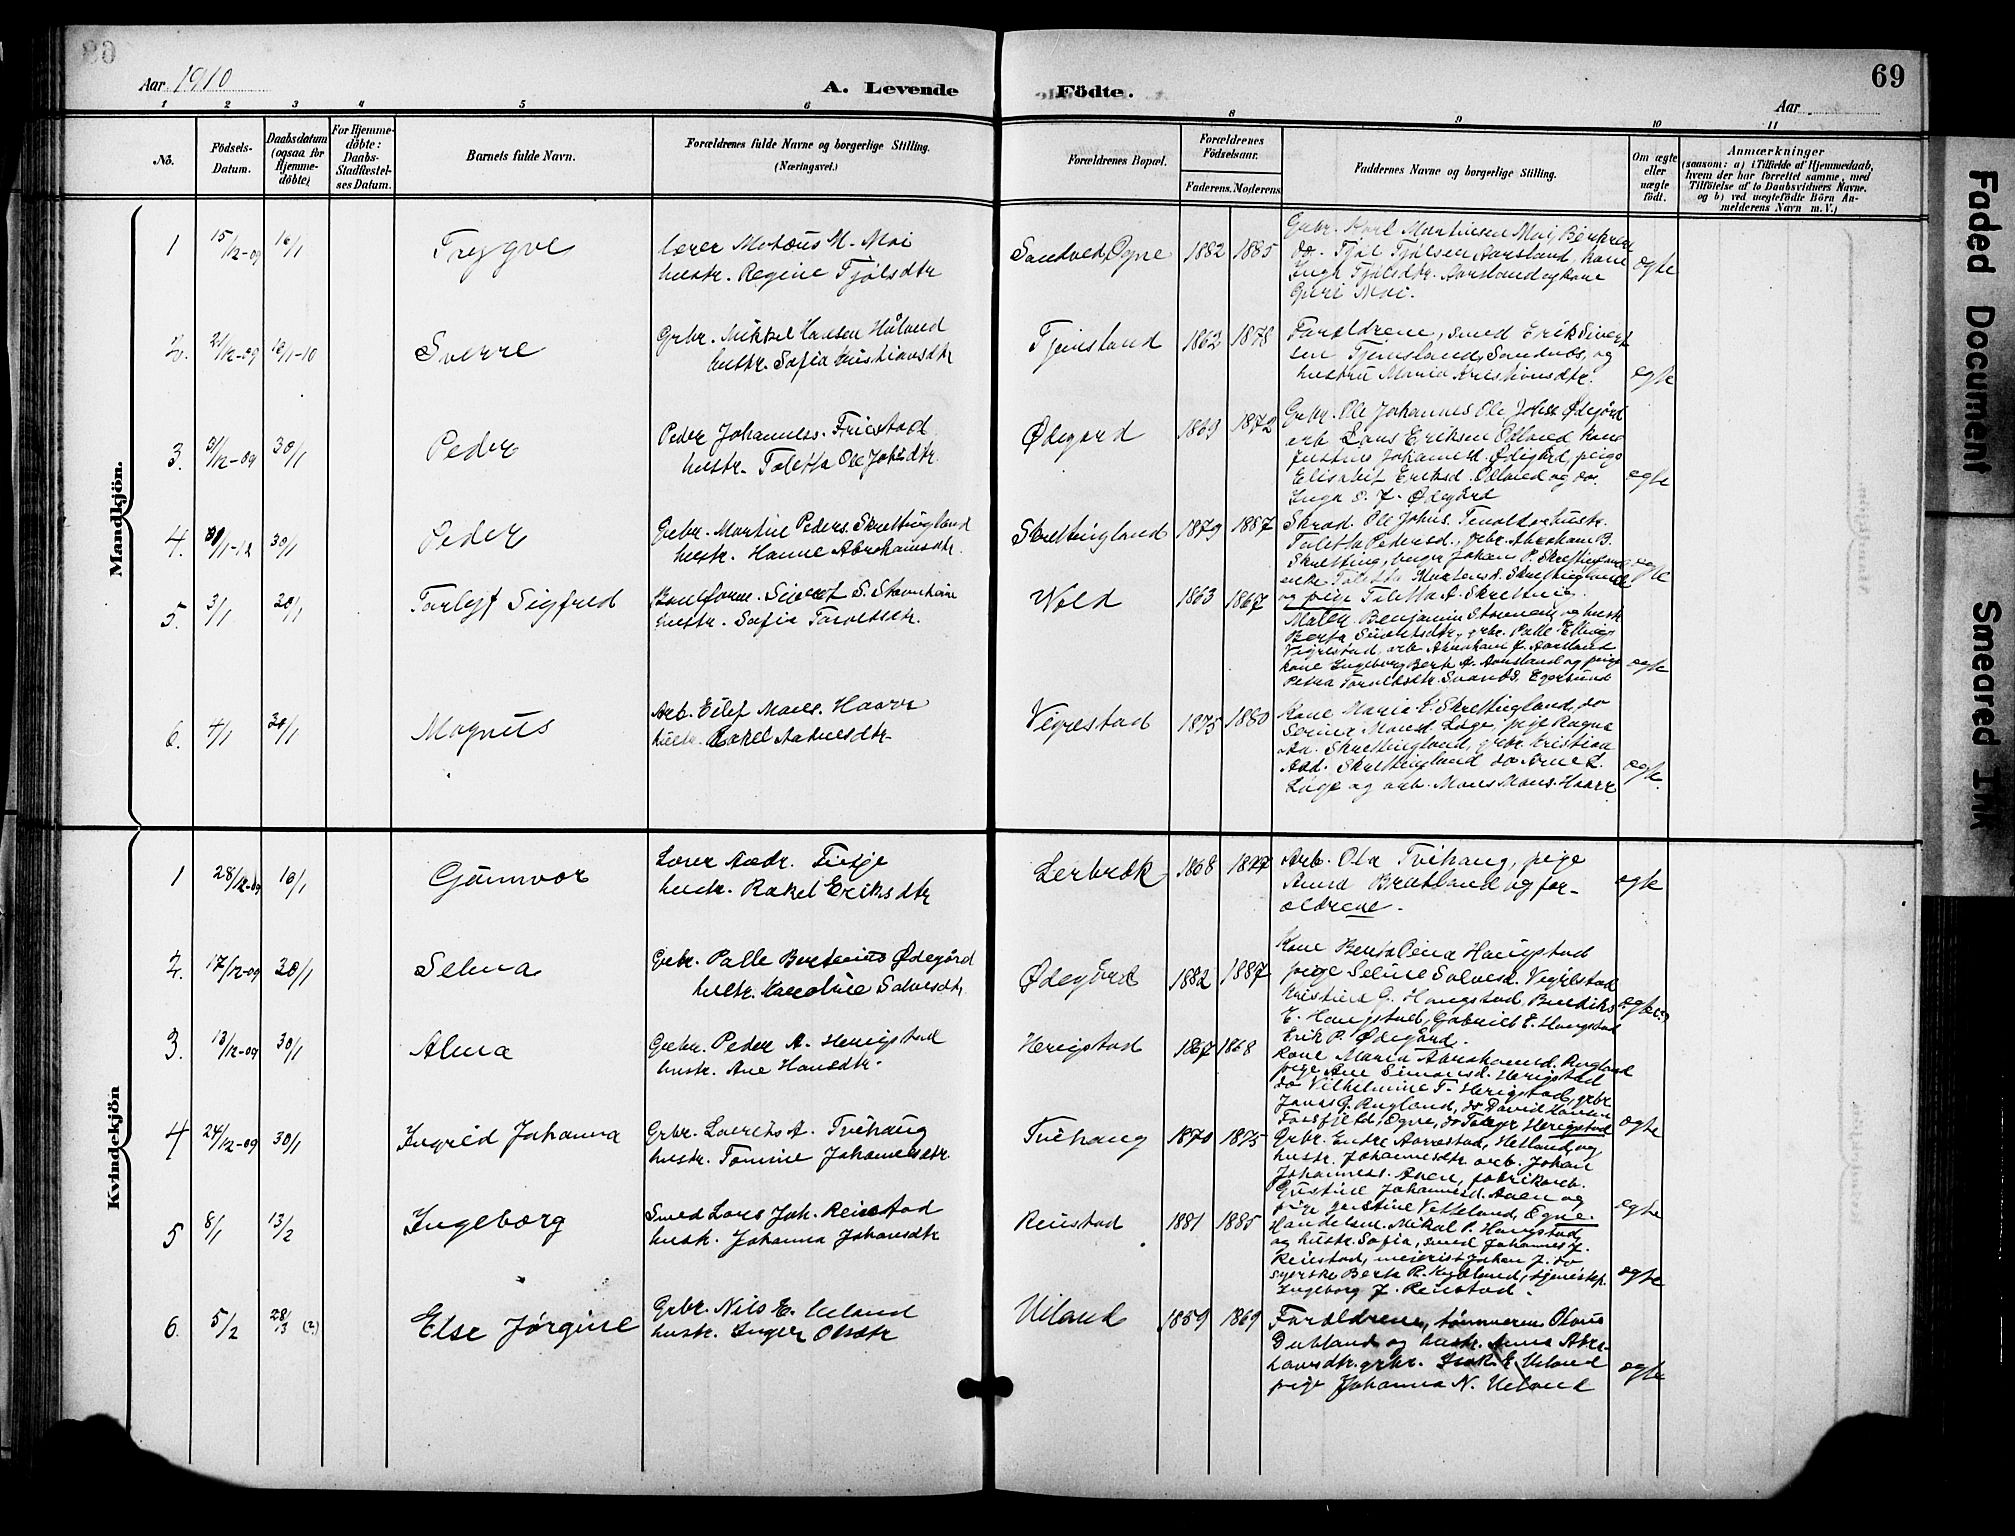 Aar 1910
A. Levende Födte.
69
Aar
1 2 3 4 5 6 8 9 10 11
No.
Födsels-Datum.
Daabsdatum (ogsaa for Hjemmedöbte)
For Hjemmedöbte: Daabs-Stadfestelses Datum.
Barnets fulde Navn.
Forældrenes fulde Navne og borgerlige Stilling. (Næringsvei.)
Forældrenes Bopæl.
Forældrenes Födselsaar.
Faderens. Moderens.
Faddernes Navne og borgerlige Stilling.
Om ægte eller uægte födt.
Anmærkninger
(saasom: a) i Tilfælde af Hjemmedaab,
hvem der har forrettet samme, med
Tilföielse af to Daabsvidners Navne.
og b) ved uægtefödte Börn Anmelderens Navn m. V.)
Mandkjön.
1 15/12-09 16/1 Trygve
Lærer Matæus M. Moi
hustr. Regine Tjølsdtr
Sandved, Ogne 1882 1885
Grbr. Karl Martinsen Moi, Bjerkrem
do. Tjøl Tjølsen Aarsland, kone
Inga Tjølsdtr. Aarsland og kone
Guri Moi.
ægte
2. 21/12-09 16/1-10 Sverre
Grbr. Mikkel Hansen Håland
hustr. Sofia Kristiansdtr
Tjemsland 1862 1878
Forældrene, smed Erik Sivertsen Tjemsland, Sandnæs, og
hustru Maria Kristiansdtr.
ægte
3. /12-09 30/1 Peder
Peder Johanness. Friestad
hustr. Taletta Ole Johsdtr.
Ødegård 1869 1872
Grbr. Ole Johannes Ole Johs. Ødegård
arb. Lars Eriksen Odland, kone
Johannesd. Ødegård, pige
Elisabet Eriksd. Odland og do.
Inga O. J. Ødegård
ægte
4. 30/1 Peder
Grbr. Martin Peders. Skrettingland
hustr. Hanne Abrahamsdtr.
Skrettingland 1879 1887
Skræd. Ole Johns. hustr.
Taletta Pedersd., grbr. Abraham B.
Skretting, unger Johan P. Skrettingland
enke Taletta Mortensd. Skrettingland
og pige Taletta A. Skretting.
ægte
5. 3/1 30/1 Tarleif Sigfred
Baneform. Sivert S. Stavnheim
hustr. Sofia Taroldsdtr.
Wold 1863 1867
Maler Benjamin Stornes og hustr.
Berta Sivertsdtr, grbr. Palle Elling
Vigrestad, arb. Abraham J. Aarsland
kone Ingeborg Berta A. Aarsland og pige
Petra Taroldsdtr. Svanes, Egersund
ægte
6. 4/1 30/1 Magnus
Arb. Eilef Mons. Haarr
hustr. Rakel Aadnesdtr.
Vigrestad 1875 1880
Kone Maria S. Skrettingland, do
Serine Monsd. Løge, pige Ragna
Aa. Skrettingland, grbr. Kristian
Aad. Skrettingland do Arne L.
Løge og arb. Mons Mons. Haarr
ægte.
Kvindekjön
1 28/12-09 16/1 Gunvor
Lærer Andr. Tveitje
hustr. Rakel Eriksdtr
Lerbrek 1868 1877
Arb. Ola Tvihaug, pige
Anna Bratland og forældrene.
ægte
2. 17/12-09 30/1 Selma
Grbr. Palle Bertinius Ødegård
hustr. Karoline Salvesdtr.
Ødegård 1882 1887
Kone Berta Lina Haugstad
pige Seline Salvesd. Vigrestad
Kristine G. Haugstad, Bendiks
E. Haugstad, Gabriel E. Haugstad
Erik P. Ødegård.
ægte
3. 13/12-09 30/1 Alma
Grbr. Peder A. Herigstad
hustr. Ane Hansdtr.
Herigstad 1867 1868
Kone Maria Abrahamsd. Rugland
pige Ane Simonsd. Herigstad
do Vilhelmine T. Herigstad, grbr
Jonas G. Rugland, do David Hansen
Fosfjeld, Ogne, do Tolleif Herigstad
ægte
4 24/12-09 30/1 Ingrid Johanna
Grbr. Laurits A. Tvihaug
hustr. Tomine Johannesdtr.
Tvihaug 1870 1875
Grbr. Endre Aarrestad, Hetland, og
hustr. Johannesdtr arb. Johan
Johanness. Auen, fabrikarb.
Gustine Johannesd. Auen og
pige Justine Vetteland, Egne.
ægte
5 8/1 13/2 Ingeborg
Smed Lars Joh. Reiestad
hustr. Johanna Johansdtr
Reiestad 1881 1885
Handelsm. Mikal P. Haugstad
og hustr. Sofia, smed Johannes J.
Reiestad, meierist Johan J. do
syerske Berta R. Kydland, tjenestep.
Ingeborg J. Reiestad.
ægte
6. 5/2 28/3 (?) Else Jørgine
Grbr. Nils E. Ueland
hustr. Inger Olsdtr
Ueland 1859 1869
Forældrene, tømmerm. Olaus
Dubland og hustr. Anna Abrahamsdtr. grbr. Isak E. Ueland
pige Johanna N. Ueland
ægte
Faded Document
Smeared Ink